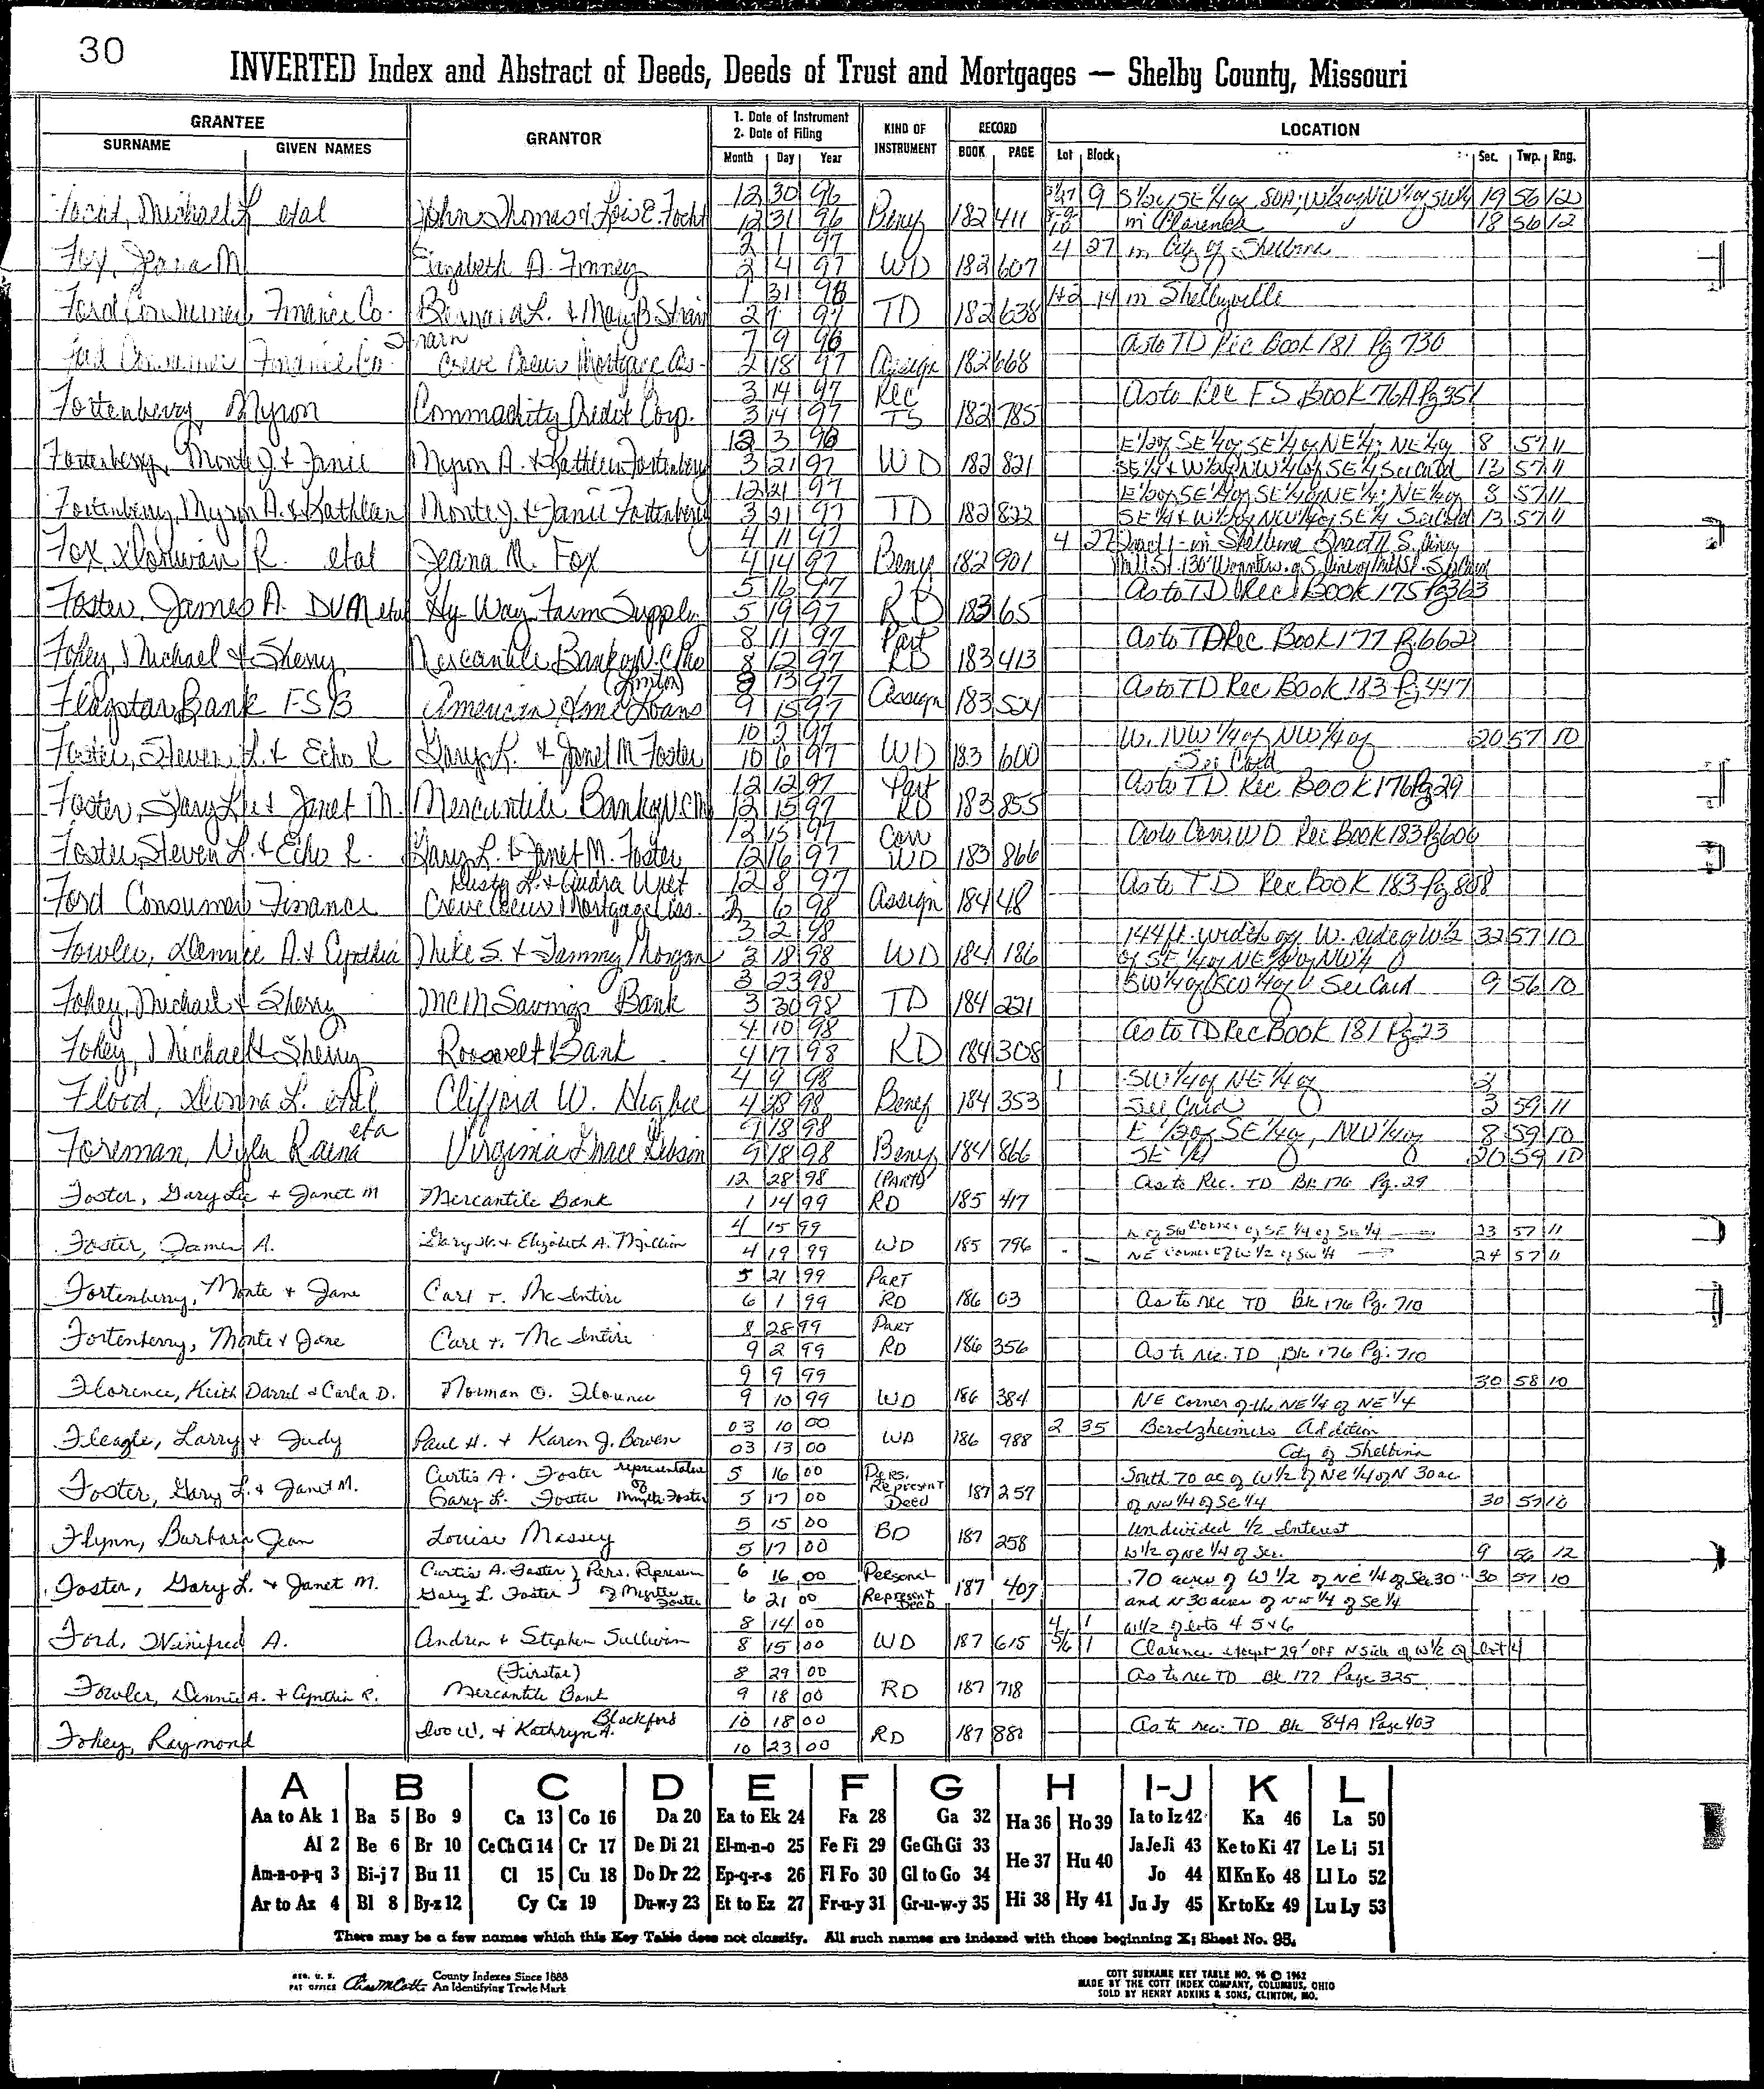 30
INVERTED Index and Abstract of Deeds, Deeds of Trust and Mortgages — Shelby County, Missouri
GRANTEE
SURNAME GIVEN NAMES
GRANTOR
1. Date of Instrument
2. Date of Filing
Month Day Year
KIND OF INSTRUMENT
RECORD
BOOK PAGE
LOCATION
Lot Block Sec. Twp. Rng.
Michael L etal John Thomas & Lois E. Focht 12 30 96 12 31 96 Beny 182 411 9 19 56 12
in Clarence 18 56 12
Fox, Jeana M Elizabeth A. Finney 2 1 97 2 4 97 WD 182 607 4 27 in City of Shelbina
Ford Consumer Finance Co. Bernard L. & Mary B Strain 1 31 2 97 TD 182 638 1+2 14 in Shelbyville
Ford Consumer Finance Co. Strain Creve Coeur Mortgage Ass. 7 9 96 2 18 97 Assign 182 668 As to TD Rec Book 181 Pg 730
Fortenberry Myron Commodity Credit Corp. 3 14 97 3 14 97 Rec TS 182 785 As to Rec FS Book 76A Pg 351
Fortenberry, Monte J. & Janie Myron A. & Kathleen Fortenberry 12 3 96 3 21 97 WD 182 821 E 1/2 of SE 1/4 of SE 1/4 of NE 1/4; NE 1/4 of 8 57 11
SE 1/4 & W 1/2 of NW 1/4 of SE 1/4 See Card 13 57 11
Fortenberry, Myron A. & Kathleen Monte J. & Janie Fortenberry 12 21 97 3 21 97 TD 182 822 E 1/2 of SE 1/4 of SE 1/4 of NE 1/4; NE 1/4 of 8 57 11
SE 1/4 & W 1/2 of NW 1/4 of SE 1/4 See Card 13 57 11
Fox R. etal Jeana M. Fox 4 11 97 4 14 97 Beny 182 901 4 27 Tract 1 - in Shelbina Tract II S. line
Foster, James A. DVM etal Hy Way Farm Supply 5 16 97 5 19 97 RD 183 65 As to TD Rec Book 175 Pg 363
Fohey, Michael & Sherry Mercantile Bank of N.C. Mo 8 11 97 8 12 97 Part RD 183 413 As to TD Rec Book 177 Pg 662
Flagstar Bank FSB American Home Loans 13 97 9 15 97 Assign 183 524 As to TD Rec Book 183 Pg 447
Foster, Steven L. & Echo R Gary L. & Janet M Foster 10 2 97 10 6 97 WD 183 600 W. NW 1/4 of NW 1/4 of 20 57 10
See Card
Foster, Gary Lee & Janet M. Mercantile Bank of N.C.M 12 12 97 12 15 97 Part RD 183 855 As to TD Rec Book 176 Pg 29
Foster, Steven L. & Echo R. Gary L. & Janet M. Foster 12 15 97 12 16 97 Corr WD 183 866 As to Corr WD Rec Book 183 Pg 600
Ford Consumer Finance Creve Coeur Mortgage Ass. 12 8 97 6 98 Assign 184 48 As to TD Rec Book 183 Pg 808
Fowler, Dennie A. & Cynthia Mike S. & Tammy Morgan 3 2 98 3 18 98 WD 184 186 144 ft. width off W. side of W 1/2 32 57 10
of SE 1/4 of NE 1/4 of NW 1/4
Fohey, Michael & Sherry MCM Savings Bank 3 23 98 3 30 98 TD 184 221 SW 1/4 of SW 1/4 of See Card 9 56 10
Fohey, Michael & Sherry Roosevelt Bank 4 10 98 4 17 98 RD 184 308 As to TD Rec Book 181 Pg 23
Flood, Donna L. etal Clifford W. Higbee 4 9 98 4 28 98 Beny 184 353 1 SW 1/4 of NE 1/4 of 2
See Card 3 59 11
Foreman, Nyla Raena etal Virginia Grace Gibson 9 18 98 9 18 98 Beny 184 866 E 1/2 of SE 1/4 of, NW 1/4 of 8 59 10
SE 1/4 20 59 10
Foster, Gary Lee & Janet M Mercantile Bank 12 28 98 1 14 99 (PART) RD 185 417 As to Rec. TD Bk 176 Pg. 29
Foster, James A. Gary W. & Elizabeth A. Million 4 15 99 4 19 99 WD 185 796 N of SW Corner of SE 1/4 of SE 1/4 23 57 11
NE Corner of W 1/2 of SW 1/4 24 57 11
Fortenberry, Monte & Jane Carl T. McIntire 5 21 99 6 1 99 PART RD 186 03 As to rec TD Bk 176 Pg. 710
Fortenberry, Monte & Jane Carl T. McIntire 8 28 99 9 2 99 PART RD 186 356 As to rec. TD Bk 176 Pg. 710
Florence, Keith Darrel & Carla D. Norman O. Florence 9 9 99 9 10 99 WD 186 384 30 58 10
NE Corner of the NE 1/4 of NE 1/4
Fleagle, Larry & Judy Paul H. & Karen J. Bowen 03 10 00 03 13 00 WD 186 988 2 35 Berolzheimers Addition
City of Shelbina
Foster, Gary L. & Janet M. Curtis A. Foster Gary L. Foster representative of Myrtle Foster 5 16 00 5 17 00 Pers. Represent Deed 187 257 South 70 ac of W 1/2 of NE 1/4 of N 30 ac
of NW 1/4 of SE 1/4 30 57 10
Flynn, Barbara Jean Louise Massey 5 15 00 5 17 00 BD 187 258 Undivided 1/2 Interest
W 1/2 of NE 1/4 of Sec. 9 56 12
Foster, Gary L. & Janet M. Curtis A. Foster Gary L. Foster } Pers. Represen of Myrtle Foster 6 16 00 6 21 00 Personal Represent Deed 187 407 70 acres of W 1/2 of NE 1/4 of Sec 30 30 57 10
and N 30 acres of NW 1/4 of SE 1/4
Ford, Winifred A. Andrea & Stephen Sullivan 8 14 00 8 15 00 WD 187 615 4 1 W 1/2 of lots 4 5 & 6
5/6 1 Clarence. except 29' off N side of W 1/2 of lot 4
Fowler, Dennie A. & Cynthia R. (Firstar) Mercantile Bank 8 29 00 9 18 00 RD 187 718 As to rec TD Bk 177 Page 325
Fohey, Raymond Ivo W. & Kathryn A. Blackford 10 18 00 10 23 00 RD 187 881 As to rec. TD Bk 84A Page 403
A B C D E F G H I-J K L
Aa to Ak 1 Ba 5 Bo 9 Ca 13 Co 16 Da 20 Ea to Ek 24 Fa 28 Ga 32 Ha 36 Ho 39 Ia to Iz 42 Ka 46 La 50
Al 2 Be 6 Br 10 Ce Ch Ci 14 Cr 17 De Di 21 El-m-n-o 25 Fe Fi 29 Ge Gh Gi 33 He 37 Hu 40 Ja Je Ji 43 Ke to Ki 47 Le Li 51
Am-n-o-p-q 3 Bi-j 7 Bu 11 Cl 15 Cu 18 Do Dr 22 Ep-q-r-s 26 Fl Fo 30 Gl to Go 34 Jo 44 Kl Kn Ko 48 Ll Lo 52
Ar to Az 4 Bl 8 By-z 12 Cy Cz 19 Du-w-y 23 Et to Ez 27 Fr-u-y 31 Gr-u-w-y 35 Hi 38 Hy 41 Ju Jy 45 Kr to Kz 49 Lu Ly 53
There may be a few names which this Key Table does not classify. All such names are indexed with those beginning X; Sheet No. 95.
REG. U. S. PAT OFFICE County Indexes Since 1888 An Identifying Trade Mark
COTT SURNAME KEY TABLE NO. 96 © 1962
MADE BY THE COTT INDEX COMPANY, COLUMBUS, OHIO
SOLD BY HENRY ADKINS & SONS, CLINTON, MO.